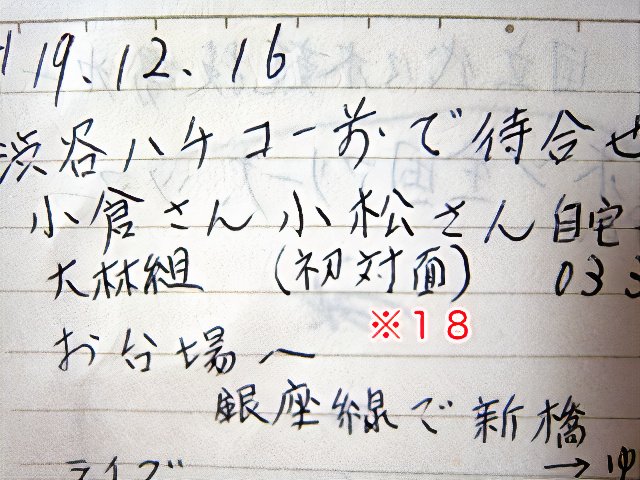 19.12.16
渋谷ハチコー前で待合せ
小倉さん 小松さん 自宅
大林組 (初対面) 033
※18
お台場へ
銀座線で新橋
ライブ →ゆ